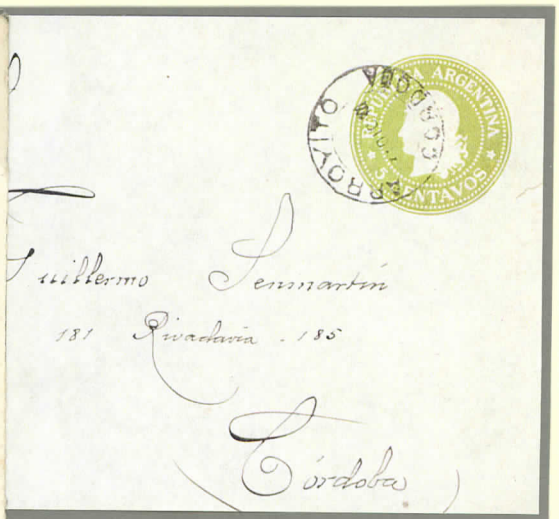 REPUBLICA ARGENTINA
5 CENTAVOS
ARROYITO
CORDOBA
Guillermo Senmartín
181 Rivadavia - 185
Córdoba